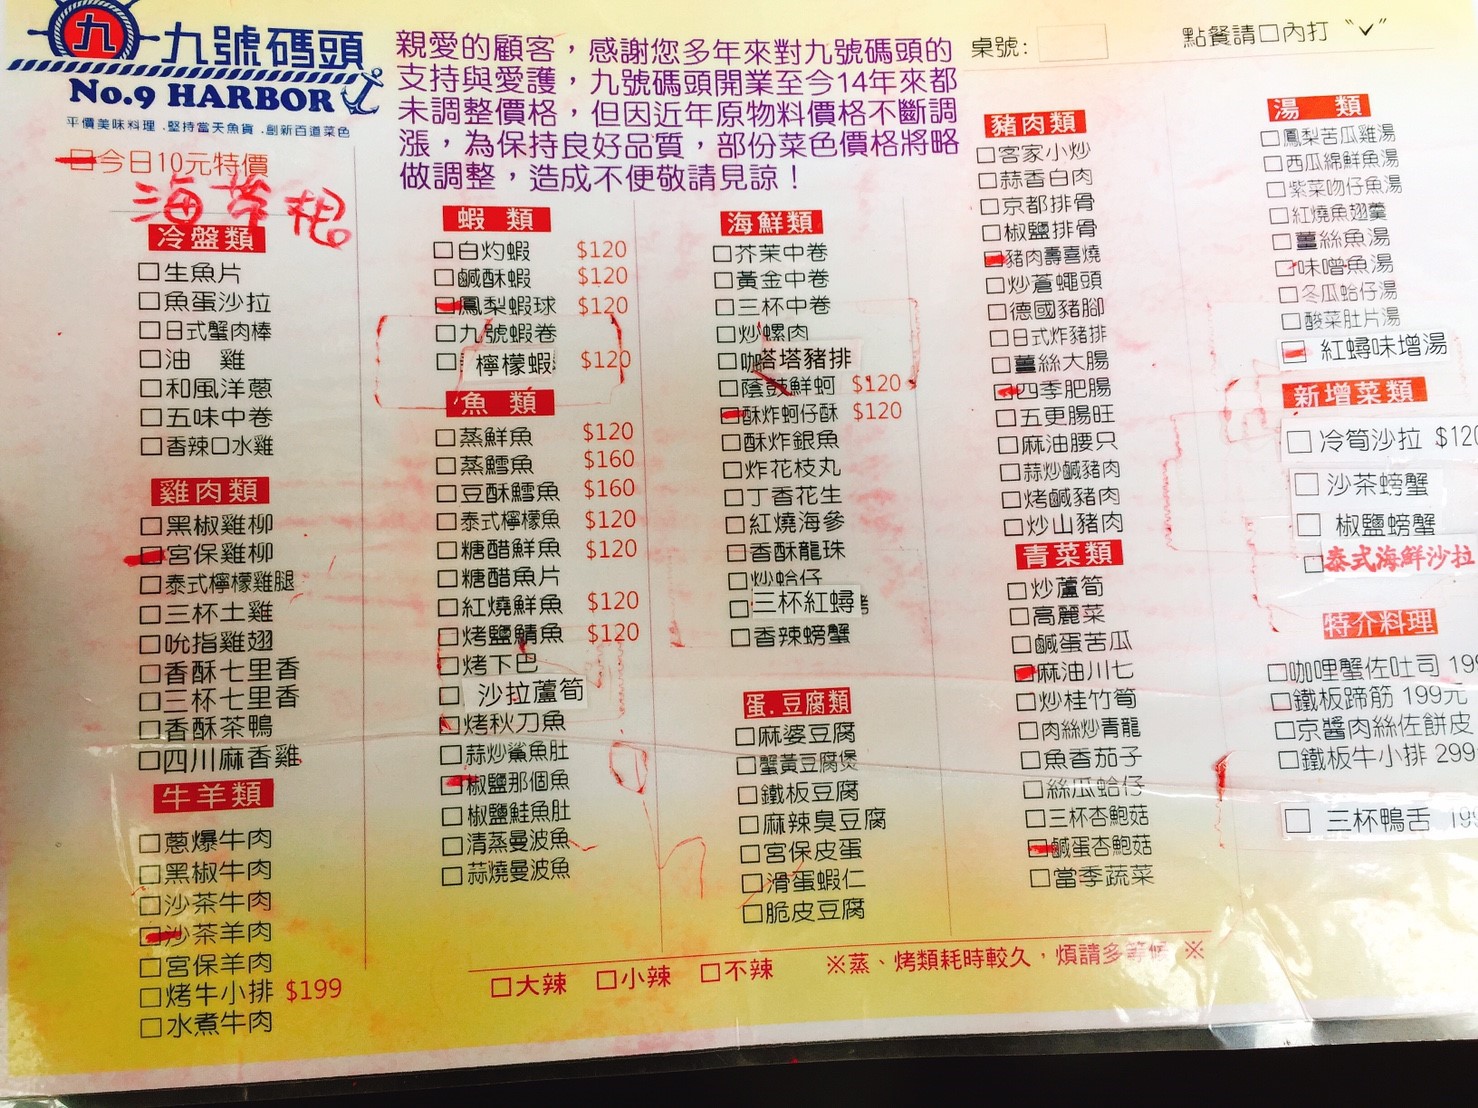 九
九號碼頭
No.9 HARBOR
平價美味料理．堅持當天魚貨．創新百道菜色
親愛的顧客，感謝您多年來對九號碼頭的
支持與愛護，九號碼頭開業至今14年來都
未調整價格，但因近年原物料價格不斷調
漲，為保持良好品質，部份菜色價格將略
做調整，造成不便敬請見諒！
桌號:
點餐請口內打 “✓”
口今日10元特價
海茸根
冷盤類
□生魚片
□魚蛋沙拉
□日式蟹肉棒
□油　雞
□和風洋蔥
□五味中卷
□香辣口水雞
雞肉類
□黑椒雞柳
□宮保雞柳
□泰式檸檬雞腿
□三杯土雞
□吮指雞翅
□香酥七里香
□三杯七里香
□香酥茶鴨
□四川麻香雞
牛羊類
□蔥爆牛肉
□黑椒牛肉
□沙茶牛肉
□沙茶羊肉
□宮保羊肉
□烤牛小排 $199
□水煮牛肉
蝦　類
□白灼蝦 $120
□鹹酥蝦 $120
□鳳梨蝦球 $120
□九號蝦卷
□檸檬蝦 $120
魚　類
□蒸鮮魚 $120
□蒸鱈魚 $160
□豆酥鱈魚 $160
□泰式檸檬魚 $120
□糖醋鮮魚 $120
□糖醋魚片
□紅燒鮮魚 $120
□烤鹽鯖魚 $120
□烤下巴
□ 沙拉蘆筍
□烤秋刀魚
□蒜炒鯊魚肚
□椒鹽那個魚
□椒鹽鮭魚肚
□清蒸曼波魚
□蒜燒曼波魚
海鮮類
□芥茉中卷
□黃金中卷
□三杯中卷
□炒螺肉
□咖嗒塔豬排
□蔭豉鮮蚵 $120
□酥炸蚵仔酥 $120
□酥炸銀魚
□炸花枝丸
□丁香花生
□紅燒海參
□香酥龍珠
□炒蛤仔
□三杯紅蟳
□香辣螃蟹
蛋.豆腐類
□麻婆豆腐
□蟹黃豆腐煲
□鐵板豆腐
□麻辣臭豆腐
□宮保皮蛋
□滑蛋蝦仁
□脆皮豆腐
豬肉類
□客家小炒
□蒜香白肉
□京都排骨
□椒鹽排骨
□豬肉壽喜燒
□炒蒼蠅頭
□德國豬腳
□日式炸豬排
□薑絲大腸
□四季肥腸
□五更腸旺
□麻油腰只
□蒜炒鹹豬肉
□烤鹹豬肉
□炒山豬肉
青菜類
□炒蘆筍
□高麗菜
□鹹蛋苦瓜
□麻油川七
□炒桂竹筍
□肉絲炒青龍
□魚香茄子
□絲瓜蛤仔
□三杯杏鮑菇
□鹹蛋杏鮑菇
□當季蔬菜
湯　類
□鳳梨苦瓜雞湯
□西瓜綿鮮魚湯
□紫菜吻仔魚湯
□紅燒魚翅羹
□薑絲魚湯
□味噌魚湯
□冬瓜蛤仔湯
□酸菜肚片湯
□ 紅蟳味增湯
新增菜類
□ 冷筍沙拉 $120
□ 沙茶螃蟹
□ 椒鹽螃蟹
□泰式海鮮沙拉
特介料理
□咖哩蟹佐吐司 199
□鐵板蹄筋 199元
□京醬肉絲佐餅皮
□鐵板牛小排 299
□ 三杯鴨舌 199
□大辣 □小辣 □不辣
※蒸、烤類耗時較久，煩請多等候 ※